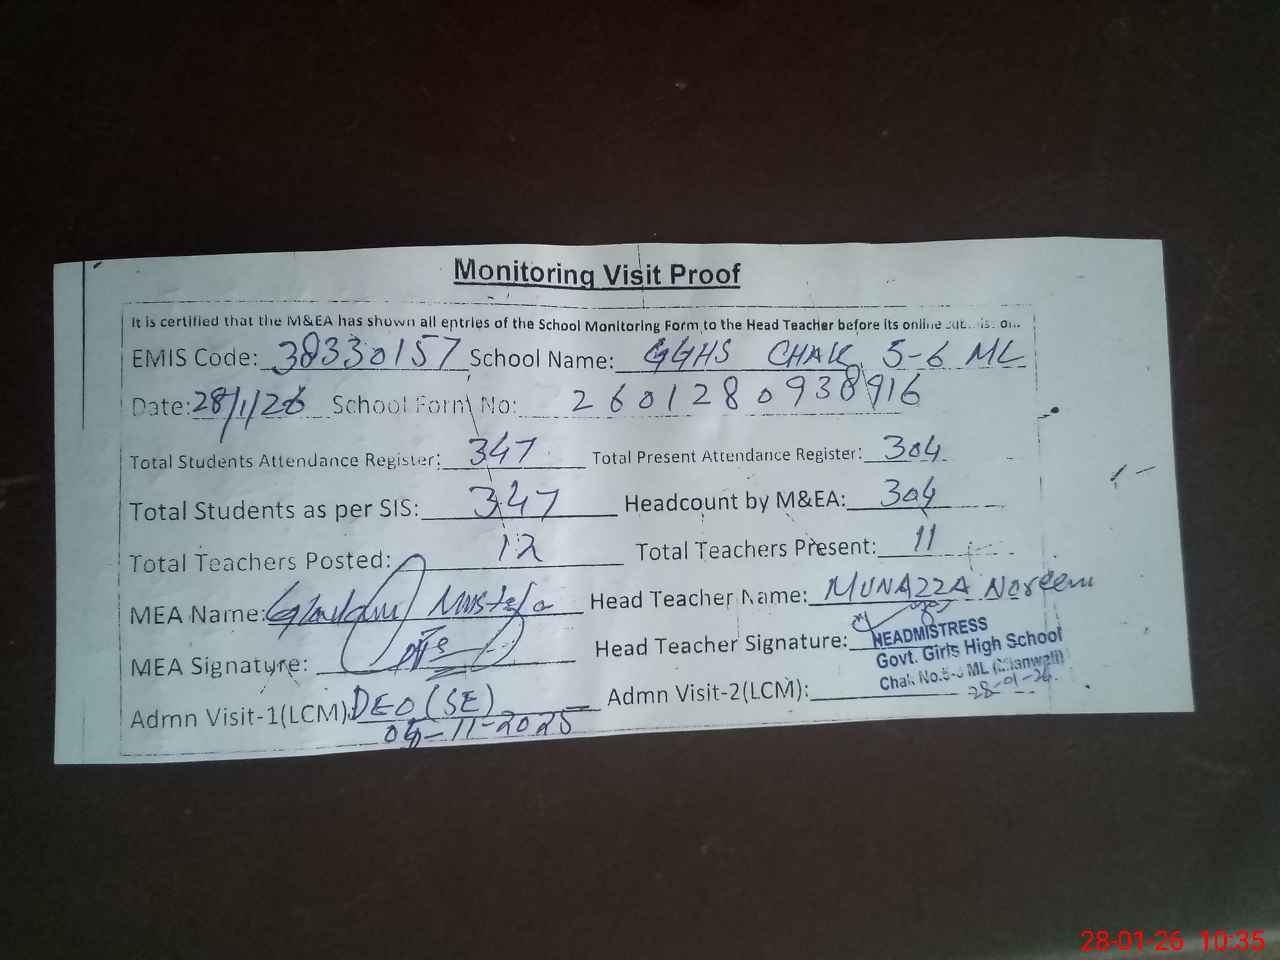 Monitoring Visit Proof
It is certified that the M&EA has shown all entries of the School Monitoring Form to the Head Teacher before its online
EMIS Code: 38330157 School Name: GGHS CHAK 5-6 ML
Date: 28/1/26 School Form No: 2601280938916
Total Students Attendance Register: 347 Total Present Attendance Register: 304
Total Students as per SIS: 347 Headcount by M&EA: 304
Total Teachers Posted: 12 Total Teachers Present: 11
MEA Name: Ghulam Mustafa Head Teacher Name: MUNAZZA Noreen
MEA Signature: Head Teacher Signature:
HEADMISTRESS
Govt. Girls High School
Chak No.5-6 ML (Mianwali)
28-01-26.
Admn Visit-1(LCM): DEO (SE) Admn Visit-2(LCM):
05-11-2025
28-01-26 10:35